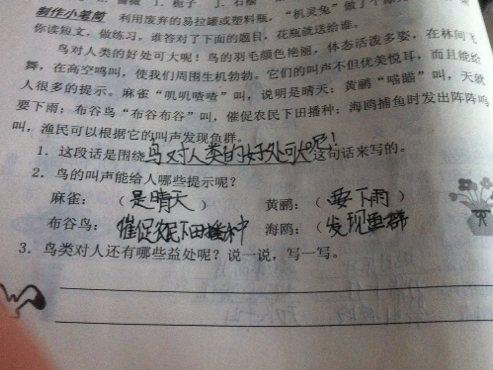 制作小笔筒 利用废弃的易拉罐或塑料瓶，“机灵兔”做了个漂亮
你读短文，做练习。谁答对了下面的题目，花瓶就送给谁。
鸟对人类的好处可大呢！鸟的羽毛颜色艳丽，体态活泼多姿，在林间飞
舞，在高空鸣叫，使我们周围生机勃勃。它们的叫声不但优美悦耳，而且能给
人很多的提示。麻雀“叽叽喳喳”叫，说明是晴天；黄鹂“喵喵”叫，天就
要下雨；布谷鸟“布谷布谷”叫，催促农民下田播种；海鸥捕鱼时发出阵阵鸣
叫，渔民可以根据它的叫声发现鱼群。
1．这段话是围绕鸟对人类的好处可大呢！这句话来写的。
2．鸟的叫声能给人哪些提示呢？
麻雀：（是晴天） 黄鹂：（要下雨）
布谷鸟：催促农民下田播种 海鸥：（发现鱼群）
3．鸟类对人还有哪些益处呢？说一说，写一写。